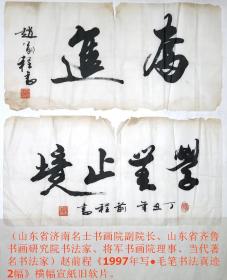 奮進
趙前程書
學無止境
丁丑年前程書
（山东省济南名士书画院副院长、山东省齐鲁
书画研究院书法家、将军书画院理事、当代著
名书法家）赵前程《1997年写●毛笔书法真迹
2幅》横幅宣紙旧软片。